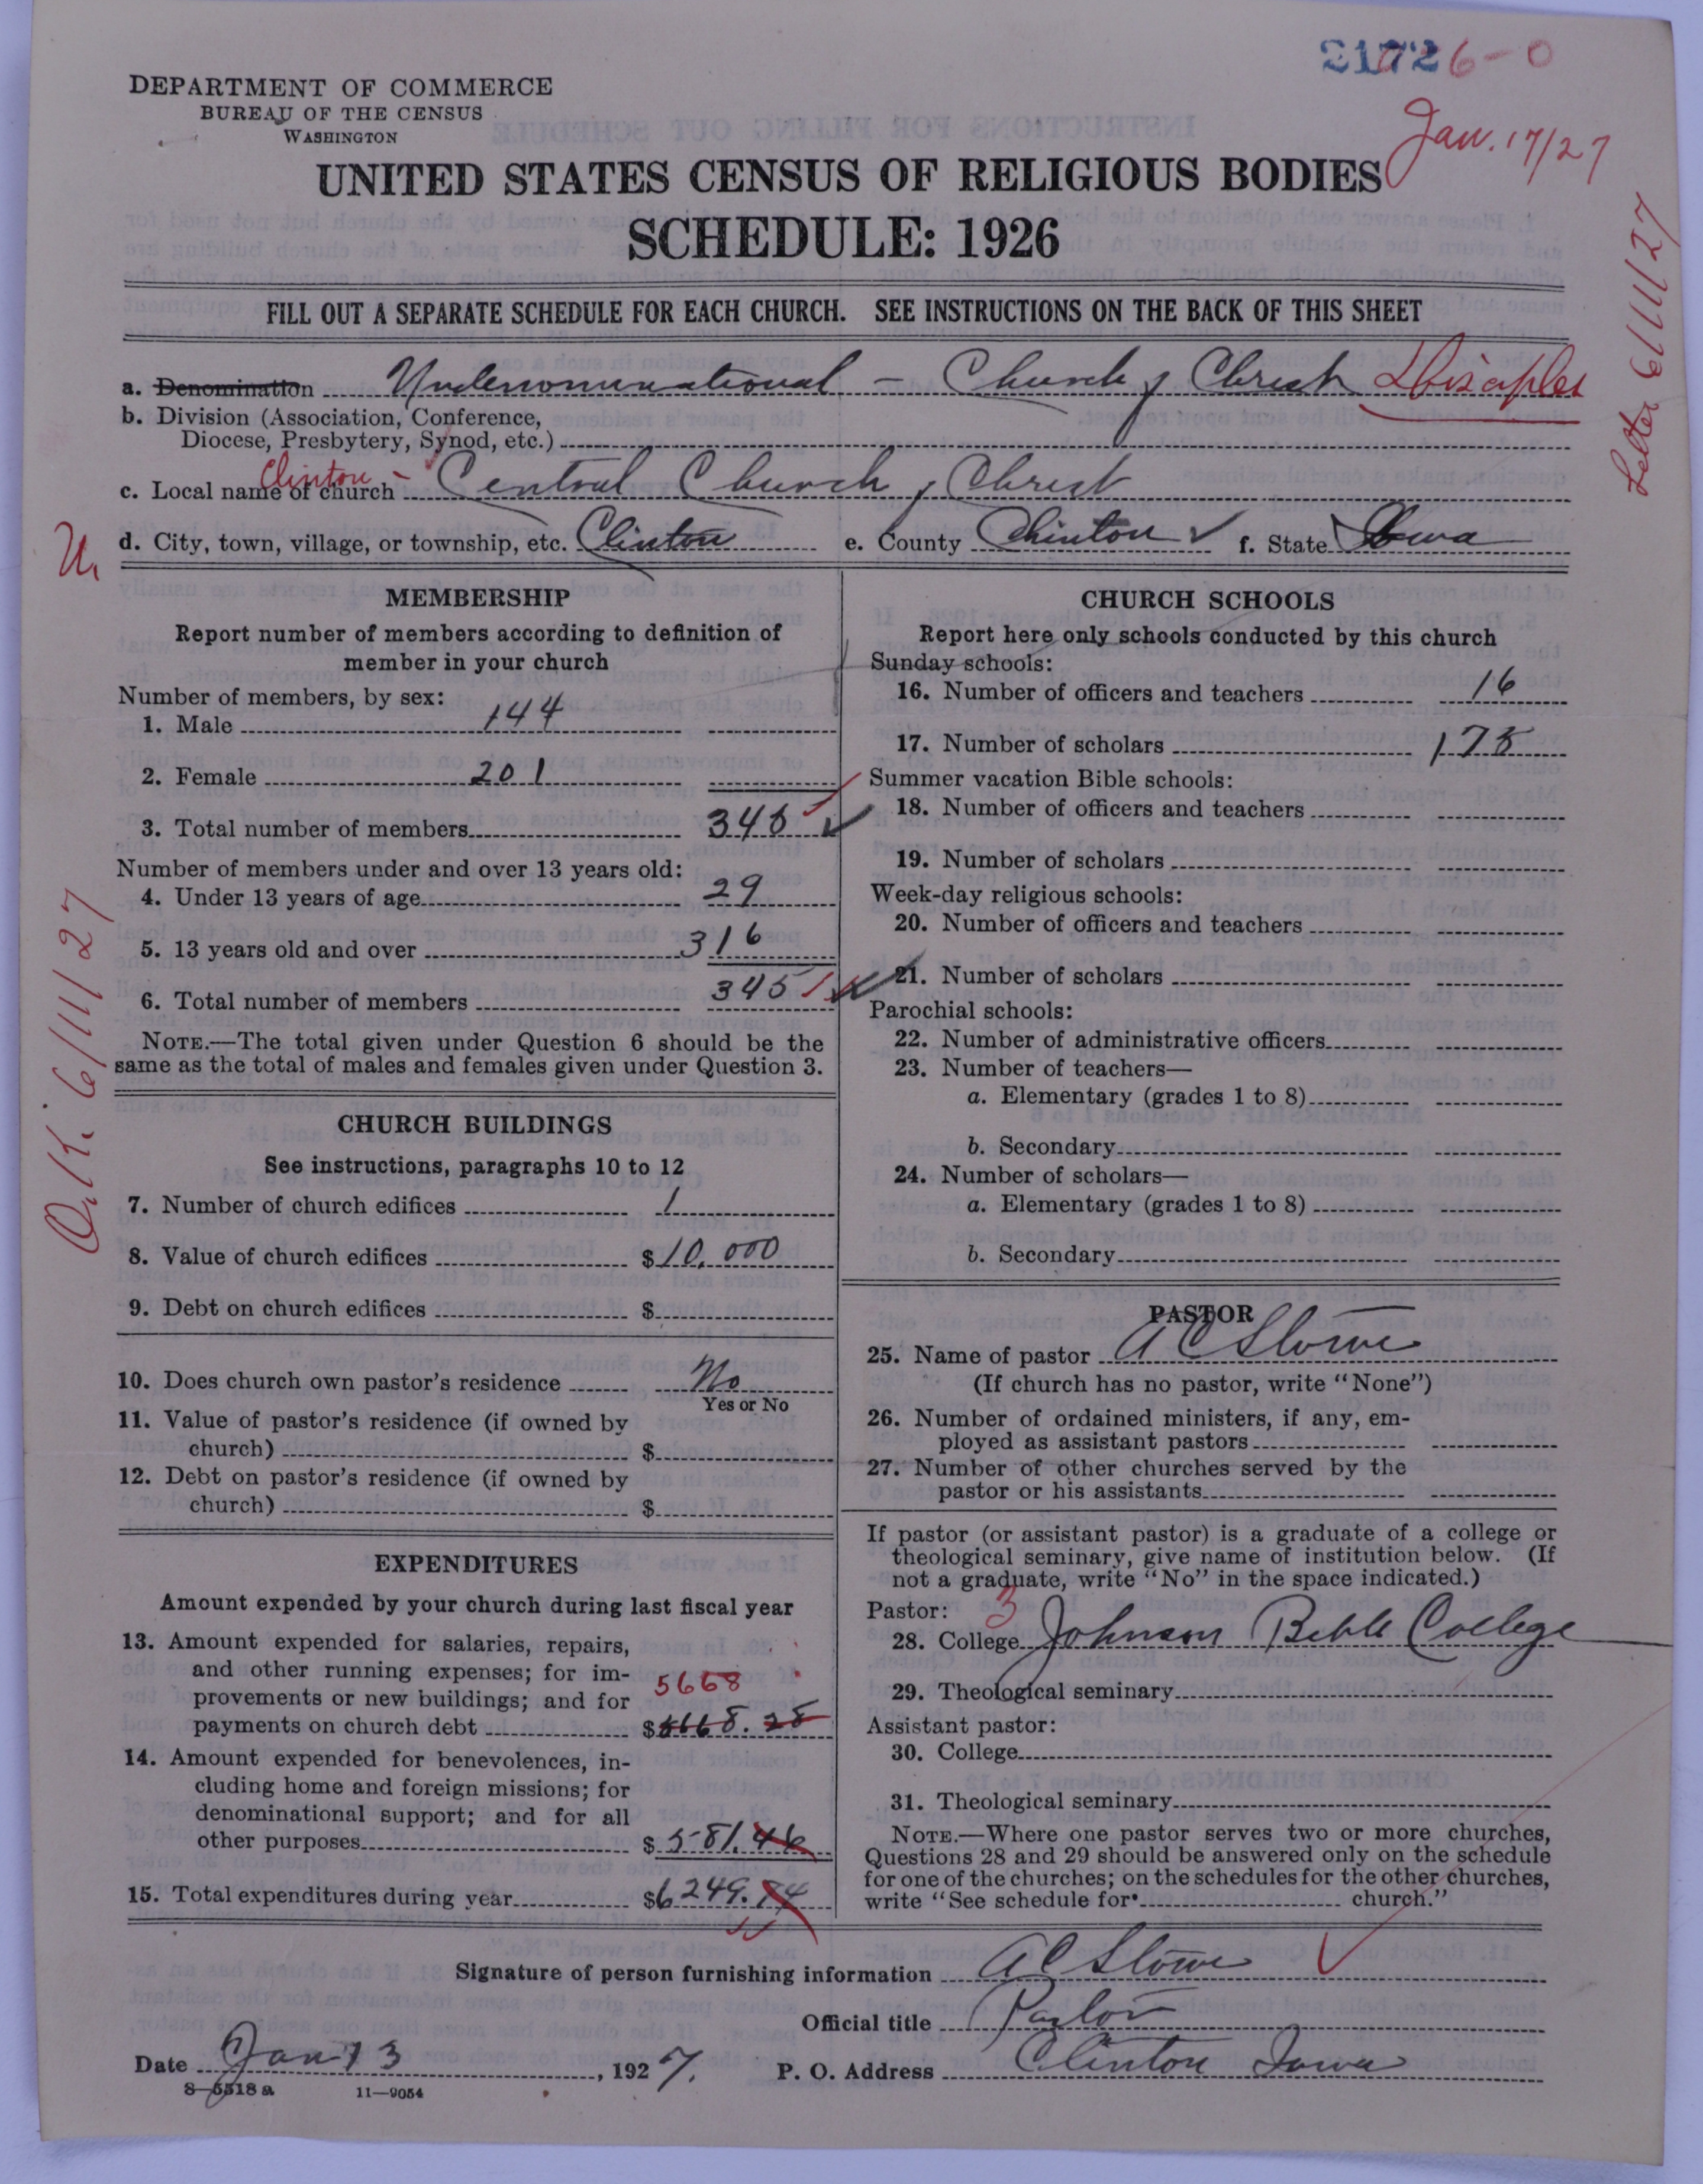 21726-0
DEPARTMENT OF COMMERCE
BUREAU OF THE CENSUS
WASHINGTON
Jan. 17/27
UNITED STATES CENSUS OF RELIGIOUS BODIES
SCHEDULE: 1926
Letter 6/11/27
FILL OUT A SEPARATE SCHEDULE FOR EACH CHURCH. SEE INSTRUCTIONS ON THE BACK OF THIS SHEET
a. Denomination Undenominational - Church of Christ Disciples
b. Division (Association, Conference,
Diocese, Presbytery, Synod, etc.)
c. Local name of church Clinton - Central Church of Christ
d. City, town, village, or township, etc. Clinton e. County Clinton ✓ f. State Iowa
U.
O.K. 6/11/27
MEMBERSHIP
Report number of members according to definition of
member in your church
Number of members, by sex:
1. Male 144
2. Female 201
3. Total number of members 345 ✓
Number of members under and over 13 years old:
4. Under 13 years of age 29
5. 13 years old and over 316
6. Total number of members 345
NOTE.—The total given under Question 6 should be the
same as the total of males and females given under Question 3.
CHURCH BUILDINGS
See instructions, paragraphs 10 to 12
7. Number of church edifices 1
8. Value of church edifices $10,000
9. Debt on church edifices $
10. Does church own pastor's residence No
Yes or No
11. Value of pastor's residence (if owned by
church) $
12. Debt on pastor's residence (if owned by
church) $
EXPENDITURES
Amount expended by your church during last fiscal year
13. Amount expended for salaries, repairs,
and other running expenses; for im-
provements or new buildings; and for 5668
payments on church debt $5668.28
14. Amount expended for benevolences, in-
cluding home and foreign missions; for
denominational support; and for all
other purposes $581.46
15. Total expenditures during year $6249.74
CHURCH SCHOOLS
Report here only schools conducted by this church
Sunday schools:
16. Number of officers and teachers 16
17. Number of scholars 178
Summer vacation Bible schools:
18. Number of officers and teachers
19. Number of scholars
Week-day religious schools:
20. Number of officers and teachers
21. Number of scholars
Parochial schools:
22. Number of administrative officers
23. Number of teachers—
a. Elementary (grades 1 to 8)
b. Secondary
24. Number of scholars—
a. Elementary (grades 1 to 8)
b. Secondary
PASTOR
25. Name of pastor A C Stowe
(If church has no pastor, write "None")
26. Number of ordained ministers, if any, em-
ployed as assistant pastors
27. Number of other churches served by the
pastor or his assistants
If pastor (or assistant pastor) is a graduate of a college or
theological seminary, give name of institution below. (If
not a graduate, write "No" in the space indicated.)
Pastor: 3
28. College Johnson Bible College
29. Theological seminary
Assistant pastor:
30. College
31. Theological seminary
NOTE.—Where one pastor serves two or more churches,
Questions 28 and 29 should be answered only on the schedule
for one of the churches; on the schedules for the other churches,
write "See schedule for church."
Signature of person furnishing information A C Stowe ✓
Official title Pastor
Date Jan 13, 1927. P. O. Address Clinton Iowa
8-5518 a 11—9054